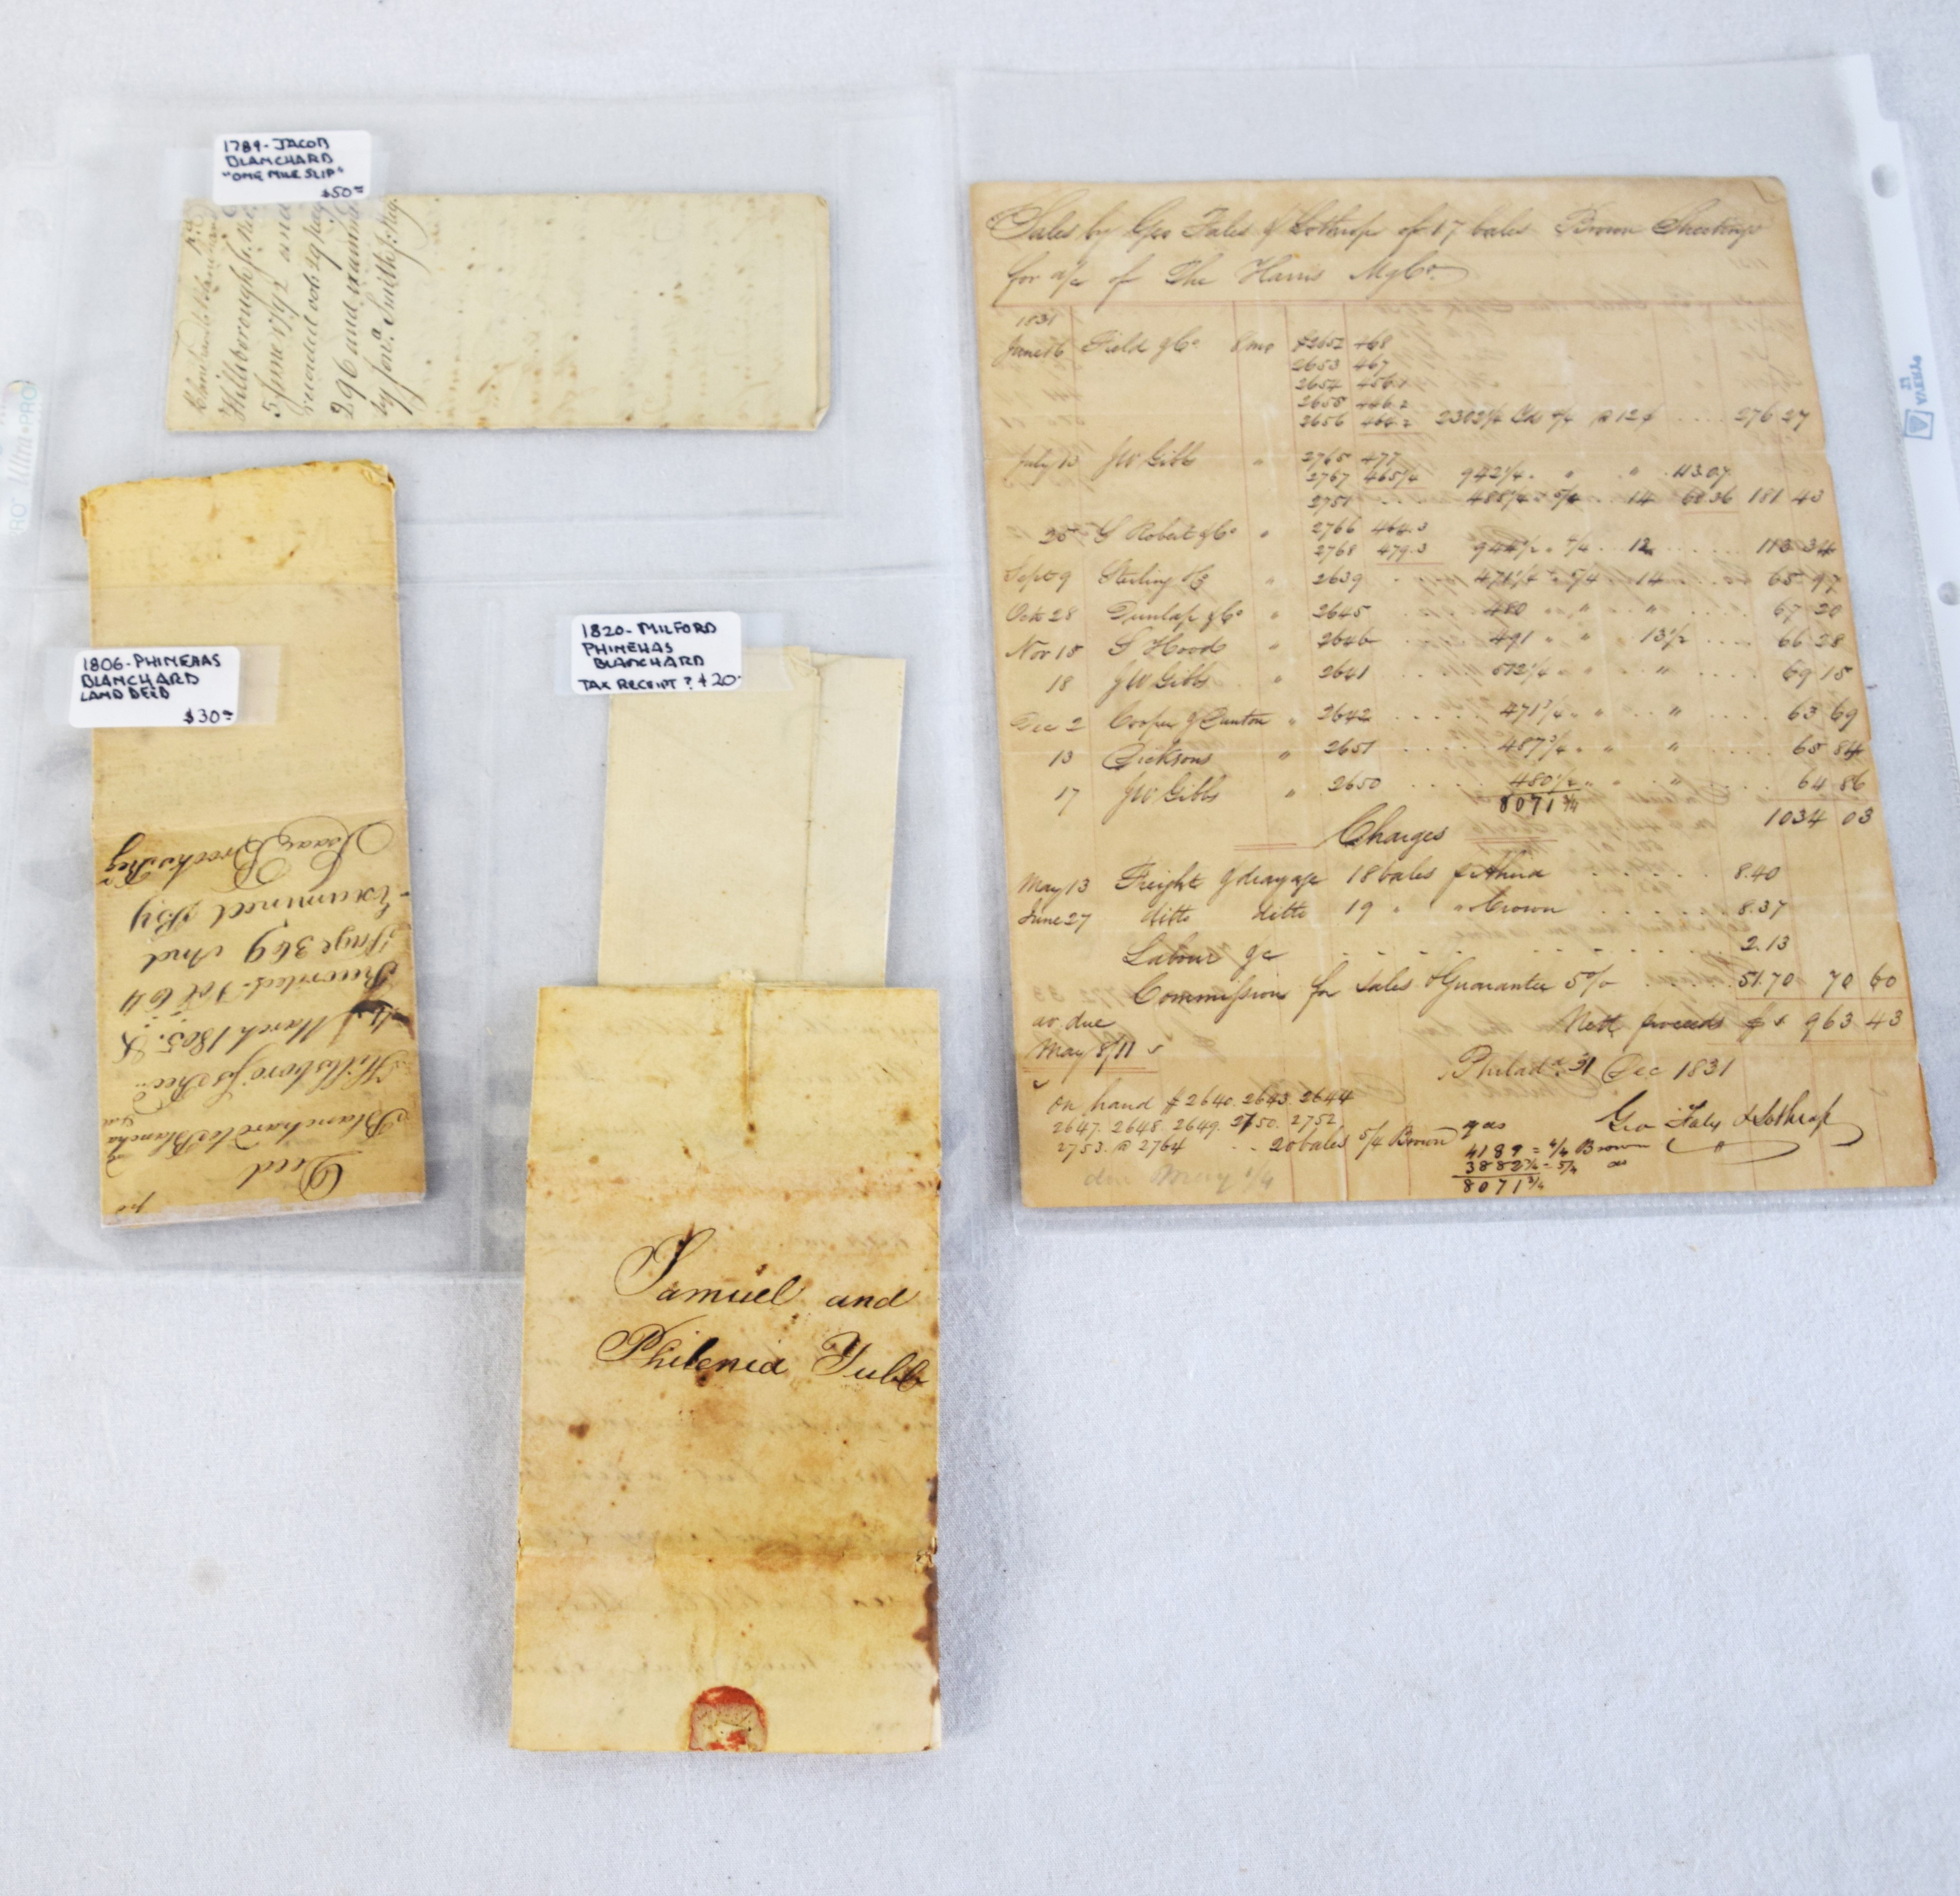 1789 - JACOB
BLANCHARD
"ONE MILE SLIP"
$50=
Hillsborough ss. Rec
5 June 1792 and
recorded vob 29 pag
296 and examined
by Jona. Smith Reg.
1806 - PHINEHAS
BLANCHARD
LAND DEED
$30=
Deed
Blanchard to Blancha
Hillsboro' ss Rec.
March 1805. &
Recorded Vol 64
Page 369 And
Examined By
Isaac Brooks Reg
1820 - MILFORD
PHINEHAS
BLANCHARD
TAX RECEIPT? $20-
Samuel and
Philenia Tubb
Sales by Geo Fales & Lothrop of 17 bales Brown Sheetings
for a/c of The Harris Mg Co.
1831
June 16 Field & Co 8 mo #2652 468
2653 467
2654 456.1
2655 446.2
2656 464.2 2302 1/4 Yds 4/4 @ 12 ¢ 276 27
July 13 JW Gibbs " 2765 477
2767 465 1/4 942 1/4 " " 113.07
2751 488 1/4 " 5/4 14 68.36 181 43
25 S Robert & Co " 2766 464.3
2768 479.3 944 1/2 " 4/4 12 113 34
Sept 9 Sterling " 2639 471 1/4 " 5/4 14 65 97
Oct 28 Dunlap & Co " 2645 480 " " " 67 20
Nov 15 S Hood " 2646 491 " " 13 1/2 66 28
18 JW Gibbs " 2641 512 1/4 " " 69 15
Dec 2 Cooper & Canton " 2642 471 3/4 " " " 63 69
13 Dicksons " 2651 487 3/4 " " " 65 84
17 JW Gibbs " 2650 480 1/2 " " " 64 86
8071 3/4 1034 03
Charges
May 13 Freight & drayage 18 bales 8.40
June 27 ditto ditto 19 " " Crown 8.37
Labour &c 2.13
Commission for Sales & Guarantee 5% 51.70 70 60
av. due Nett proceeds $ 963 43
May 8/11
Philada. 31 Dec 1831
Geo Fales & Lothrop
on hand # 2640. 2643. 2644
2647. 2648. 2649. 2750. 2752.
2753. @ 2764 20 bales 5/4 Brown
due May 1/4
yds
4189 = 4/4 Brown
3882 3/4 = 5/4 do
8071 3/4